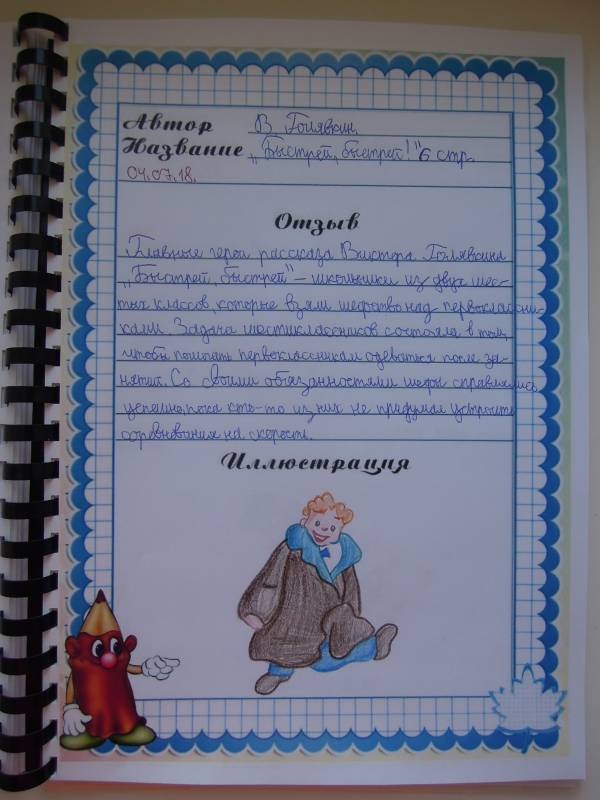 Автор В. Голявкин.
Название „Быстрей, быстрей!" 6 стр.
04.07.18.
Отзыв
Главные герои рассказа Виктора Голявкина
„Быстрей, быстрей" – школьники из двух шес-
тых классов, которые взяли шефство над первоклассни-
ками. Задача шестиклассников состояла в том,
чтобы помогать первоклассникам одеваться после за-
нятий. Со своими обязанностями шефы справлялись
успешно, пока кто-то из них не придумал устроить
соревнования на скорость.
Иллюстрация